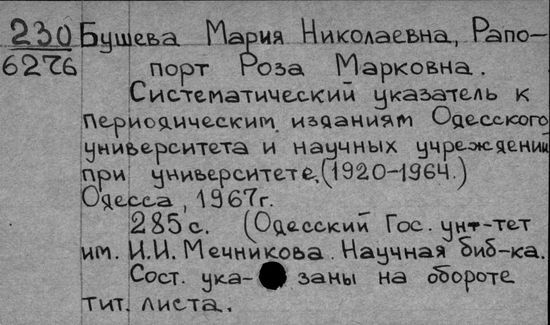 230 Бушева Мария Николаевна, Рапо-
6276 порт Роза Марковна.
Систематический указатель к
периодическим изданиям Одесского
университета и научных учреждений
при университете. (1920-1964.)
Одесса, 1967г.
285с. (Одесский Гос. ун-тет
им. И.И. Мечникова. Научная биб-ка.
Сост. ука- заны на обороте
тит. листа.